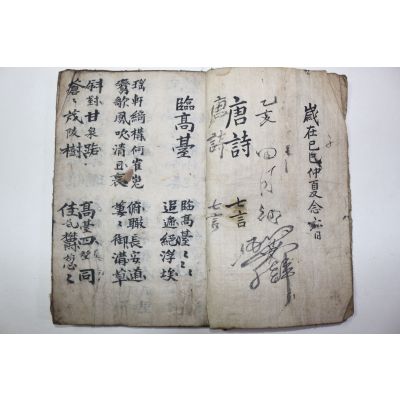 歲在己巳仲夏念六日
乙亥 四月
唐詩 七言
唐詩 七言
臨高臺
臨高臺〻〻
迢遞絕浮埃
瑤軒綺構何崔嵬
鸞歌鳳吹清且哀
俯瞰長安道
萋〻御溝草
斜對甘泉路
蒼〻茂陵樹
高臺四望同
佳氣鬱葱〻